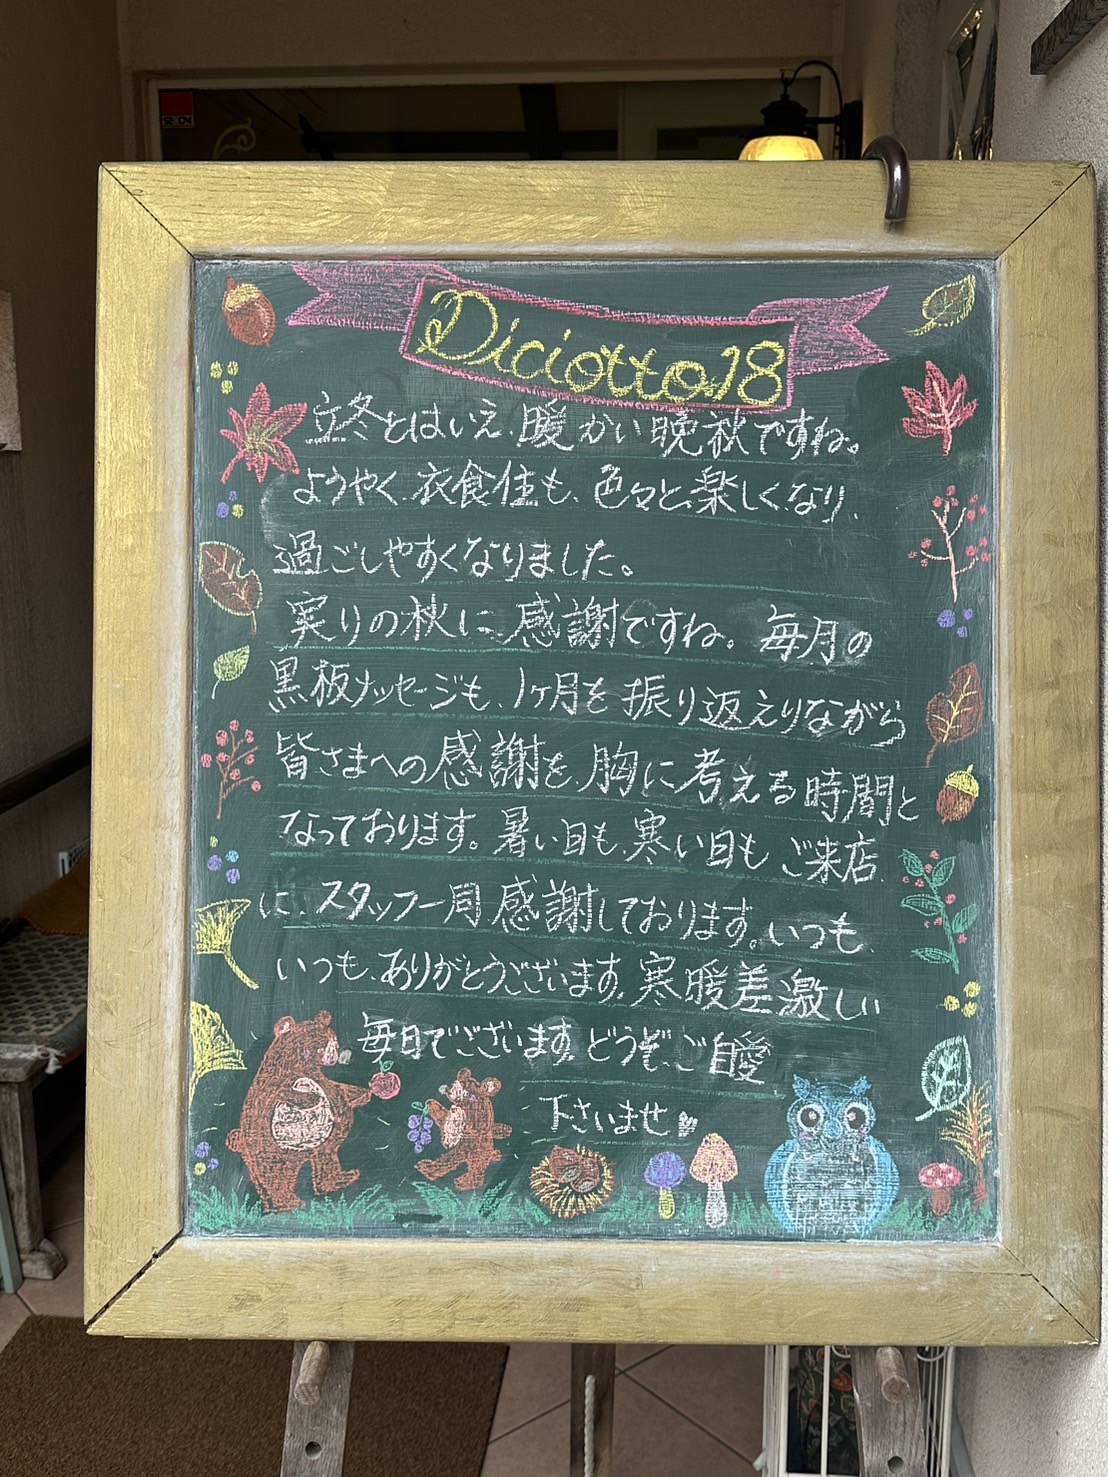 Diciotto18
立冬とはいえ、暖かい晩秋ですね。
ようやく、衣食住も、色々と楽しくなり、
過ごしやすくなりました。
実りの秋に、感謝ですね。毎月の
黒板メッセージも、1ヶ月を振り返えりながら
皆さまへの感謝を、胸に考える時間と
なっております。暑い日も、寒い日もご来店
に、スタッフ一同感謝しております。いつも
いつも、ありがとうございます。寒暖差激しい
毎日でございます。どうぞ、ご自愛
下さいませ